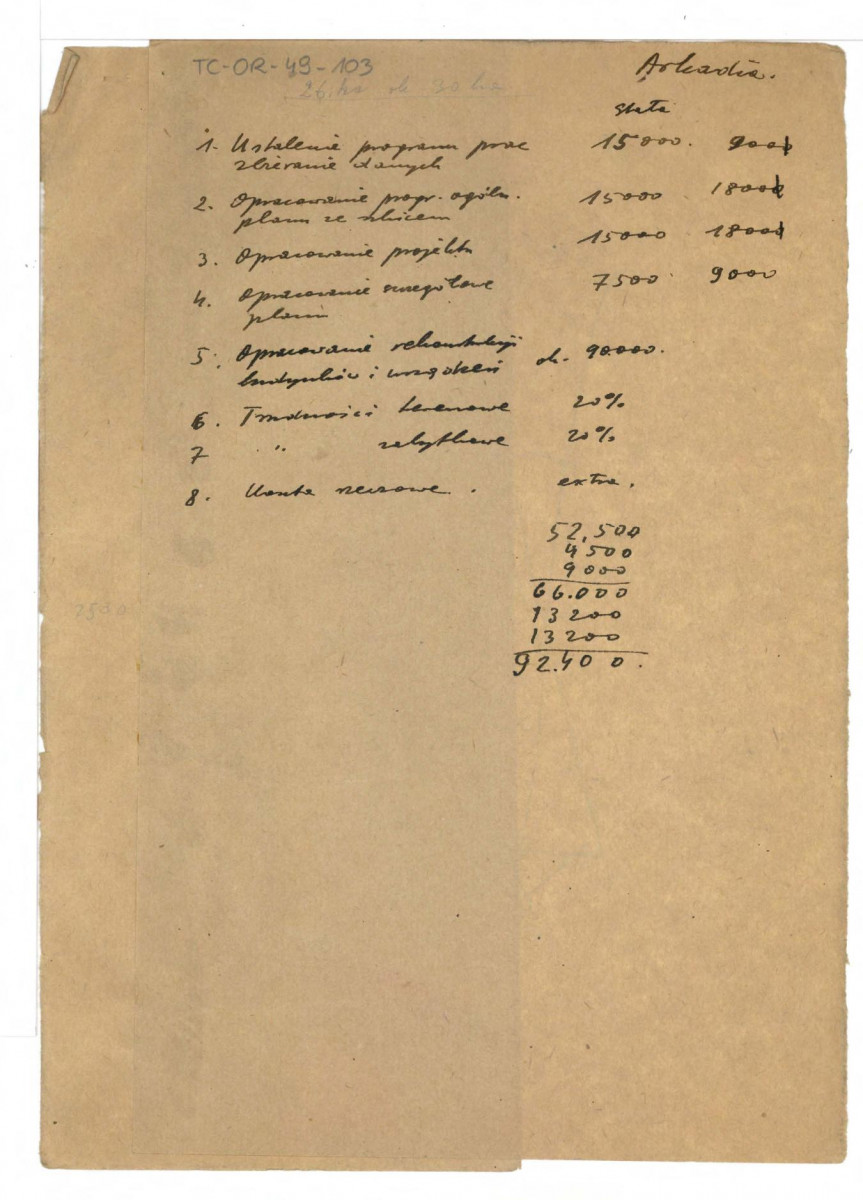 TC-OR-49-103
Arkadia.
26 ha ok 30 ha
stała
1. Ustalenie programu prac 15000. 9000
zbieranie danych
2. Opracowanie progr. ogóln. 15000 18000
planu ze szkicem
3. Opracowanie projektu 15000 18000
4. Opracowanie szczegółowe 7500 9000
planu
5. Opracowanie rekonstrukcji
budynków i urządzeń ok. 90.000.
6. Trudności terenowe 20%
7 " zabytkowe 20%
8. Koszta rzeczowe. extra.
52.500
4500
9000
66.000
13200
13200
92.400.
2500